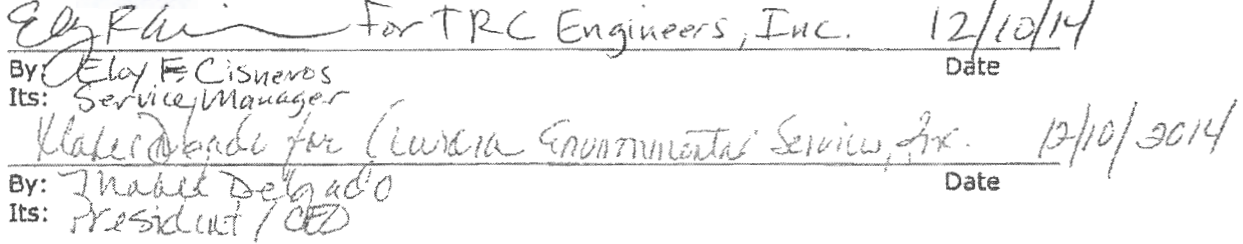 For TRC Engineers, Inc. 12/10/14
By: Eloy F. Cisneros Date
Its: Service Manager
for Environmental Services, Inc. 12/10/2014
By: Delgado Date
Its: President / CEO